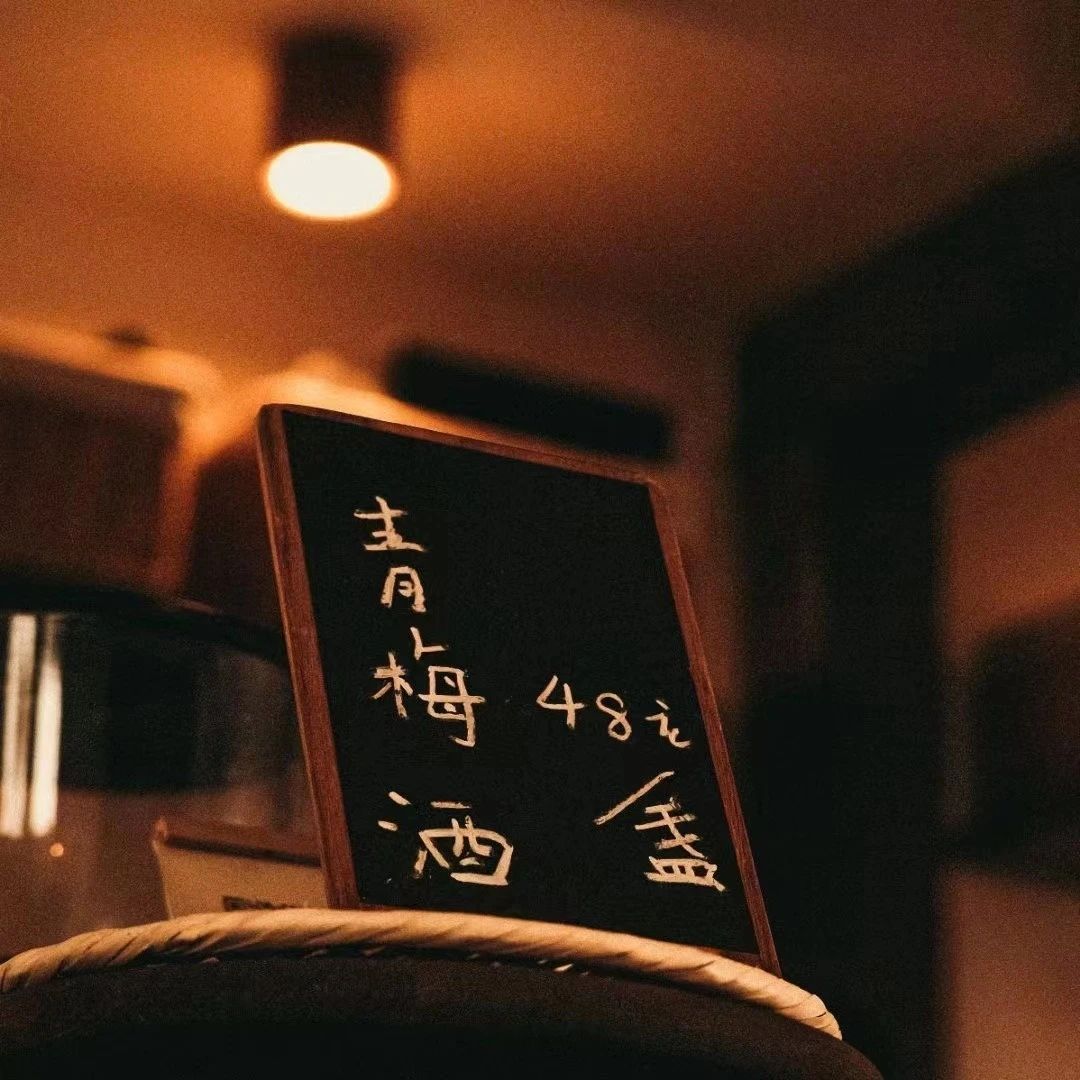 青梅酒
48元
/盏